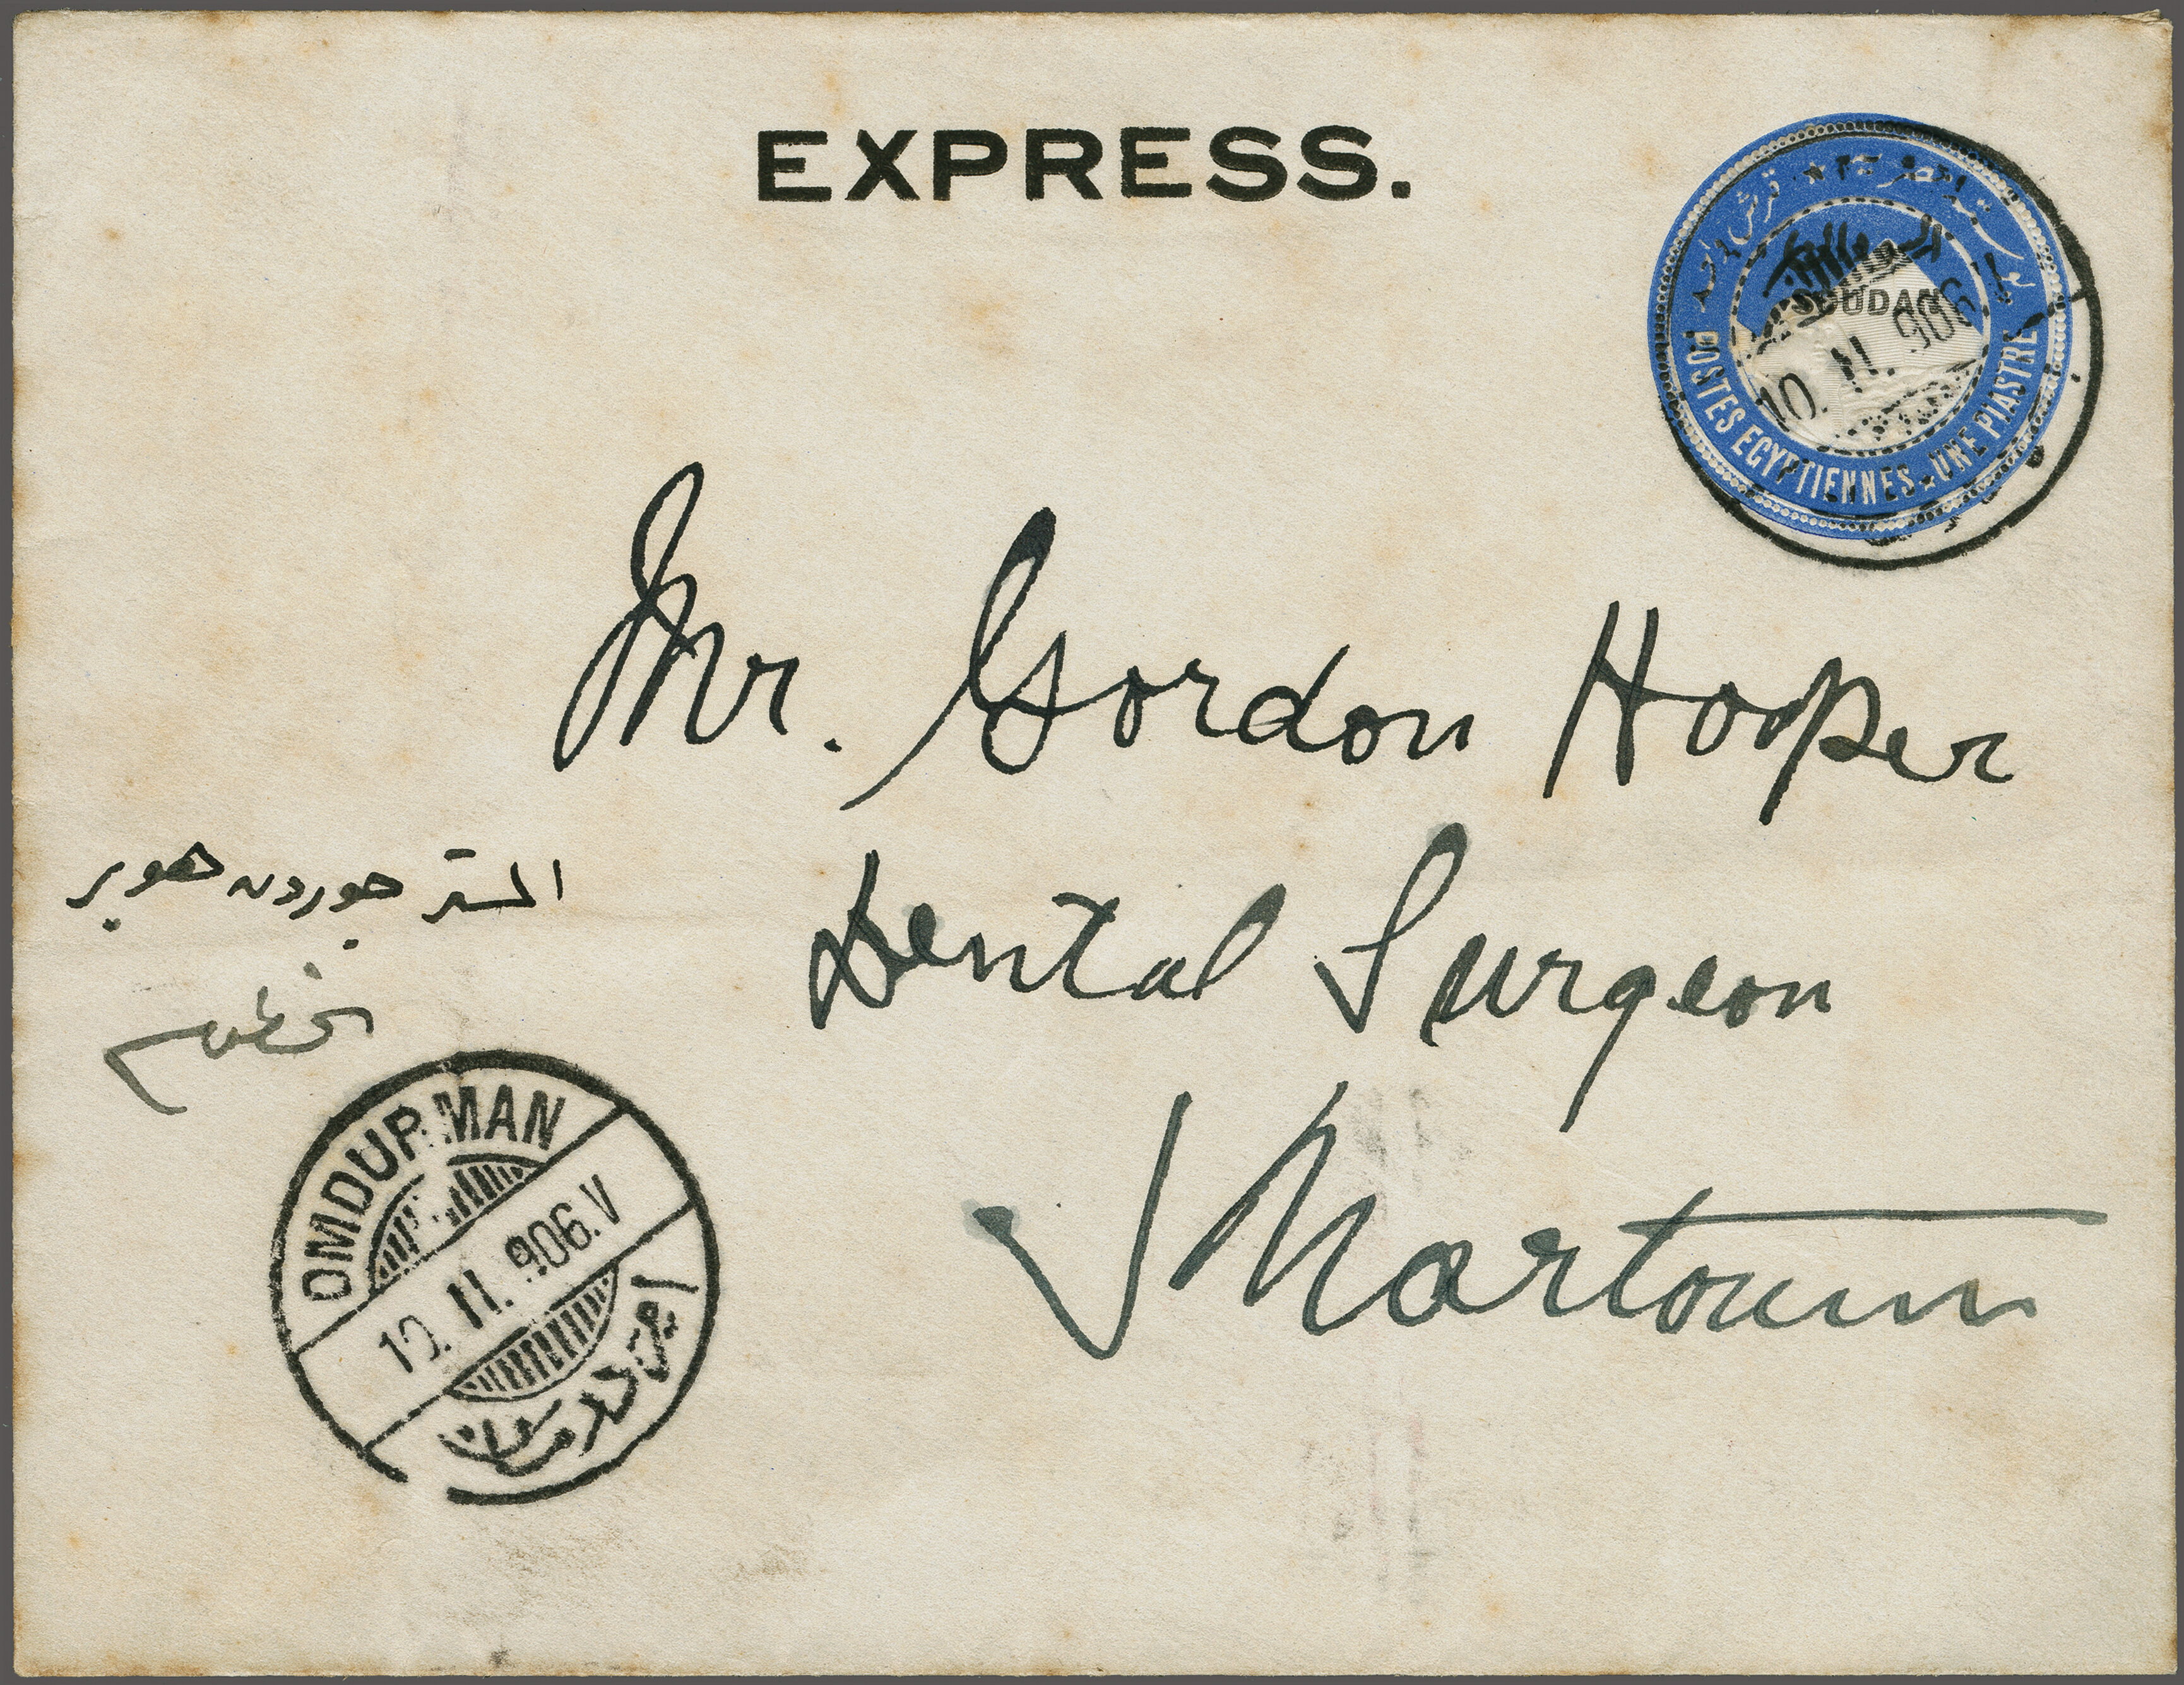 EXPRESS.
بوستة مصرية ★ قرش واحد
السودان
SOUDAN
10. II. 906.
POSTES EGYPTIENNES ★ UNE PIASTRE
Mr. Gordon Hooper
المستر جوردن هوبر
Dental Surgeon
الخرطوم
Khartoum
OMDURMAN
10. II. 906. V
ام درمان